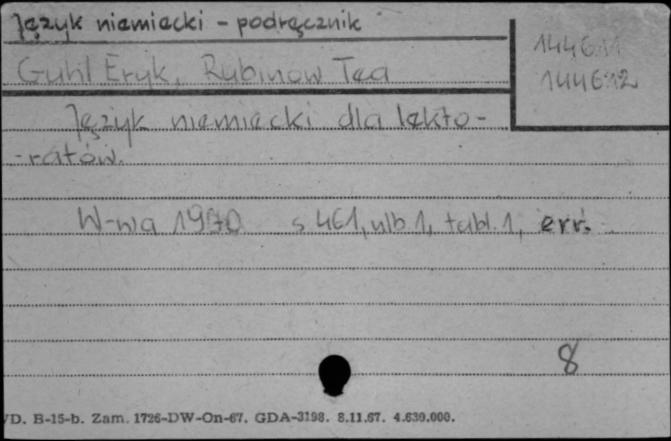 Język niemiecki - podręcznik
14461
Guhl Eryk, Rubinow Tea
144612
Język niemiecki dla lekto-
-ratów.
W-wa 1970 s 461, nlb 1, tabl. 1, err.
8
D. B-15-b. Zam. 1726-DW-On-67. GDA-3198. 8.11.67. 4.630.000.